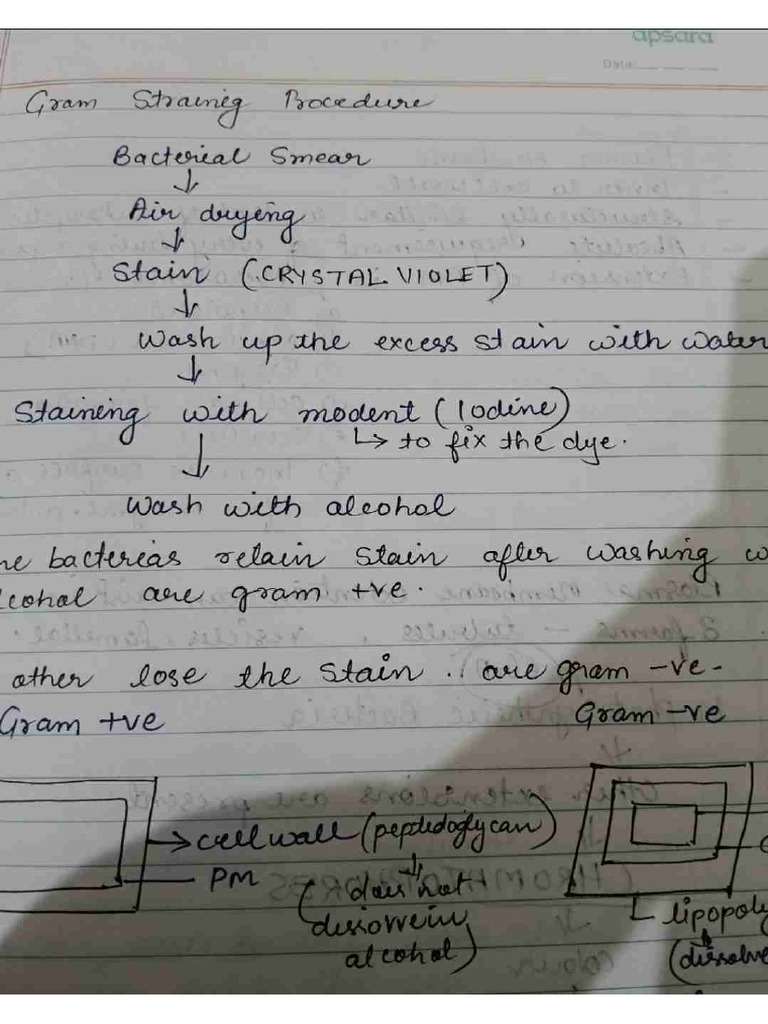 apsara
DATE:
Gram Straineg Procedure
Bacterial Smear
↓
Air dryeng
↓
Stain (CRYSTAL VIOLET)
↓
Wash up the excess stain with water
↓
Staining with modent (Iodine)
↳ to fix the dye.
↓
Wash with alcohol
bactereas retain stain after washing
are gram +ve.
other lose the stain .. are gram -ve-
Gram +ve Gram -ve
→ cell wall (peptedoglycan)
PM
(does not
dissorve in
alcohol)
lipopoly
(dissolve